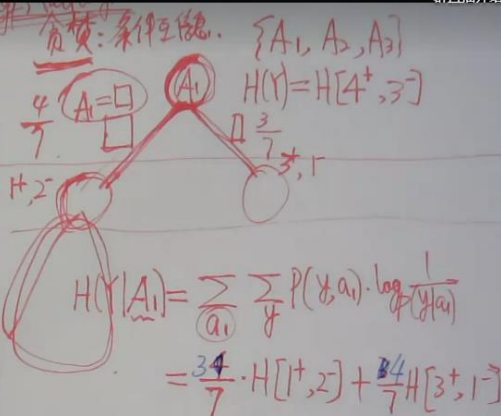 贪婪：条件互信息. {A₁, A₂, A₃}
A₁ H(Y) = H[4⁺, 3⁻]
4/7 A₁=□ □ 3/7
1⁺, 2⁻ 3⁺, 1⁻
H(Y|A₁) = ∑_{a₁} ∑_y P(y,a₁)·log 1/P(y|a₁)
= 3/7·H[1⁺,2⁻] + 4/7 H[3⁺,1⁻]